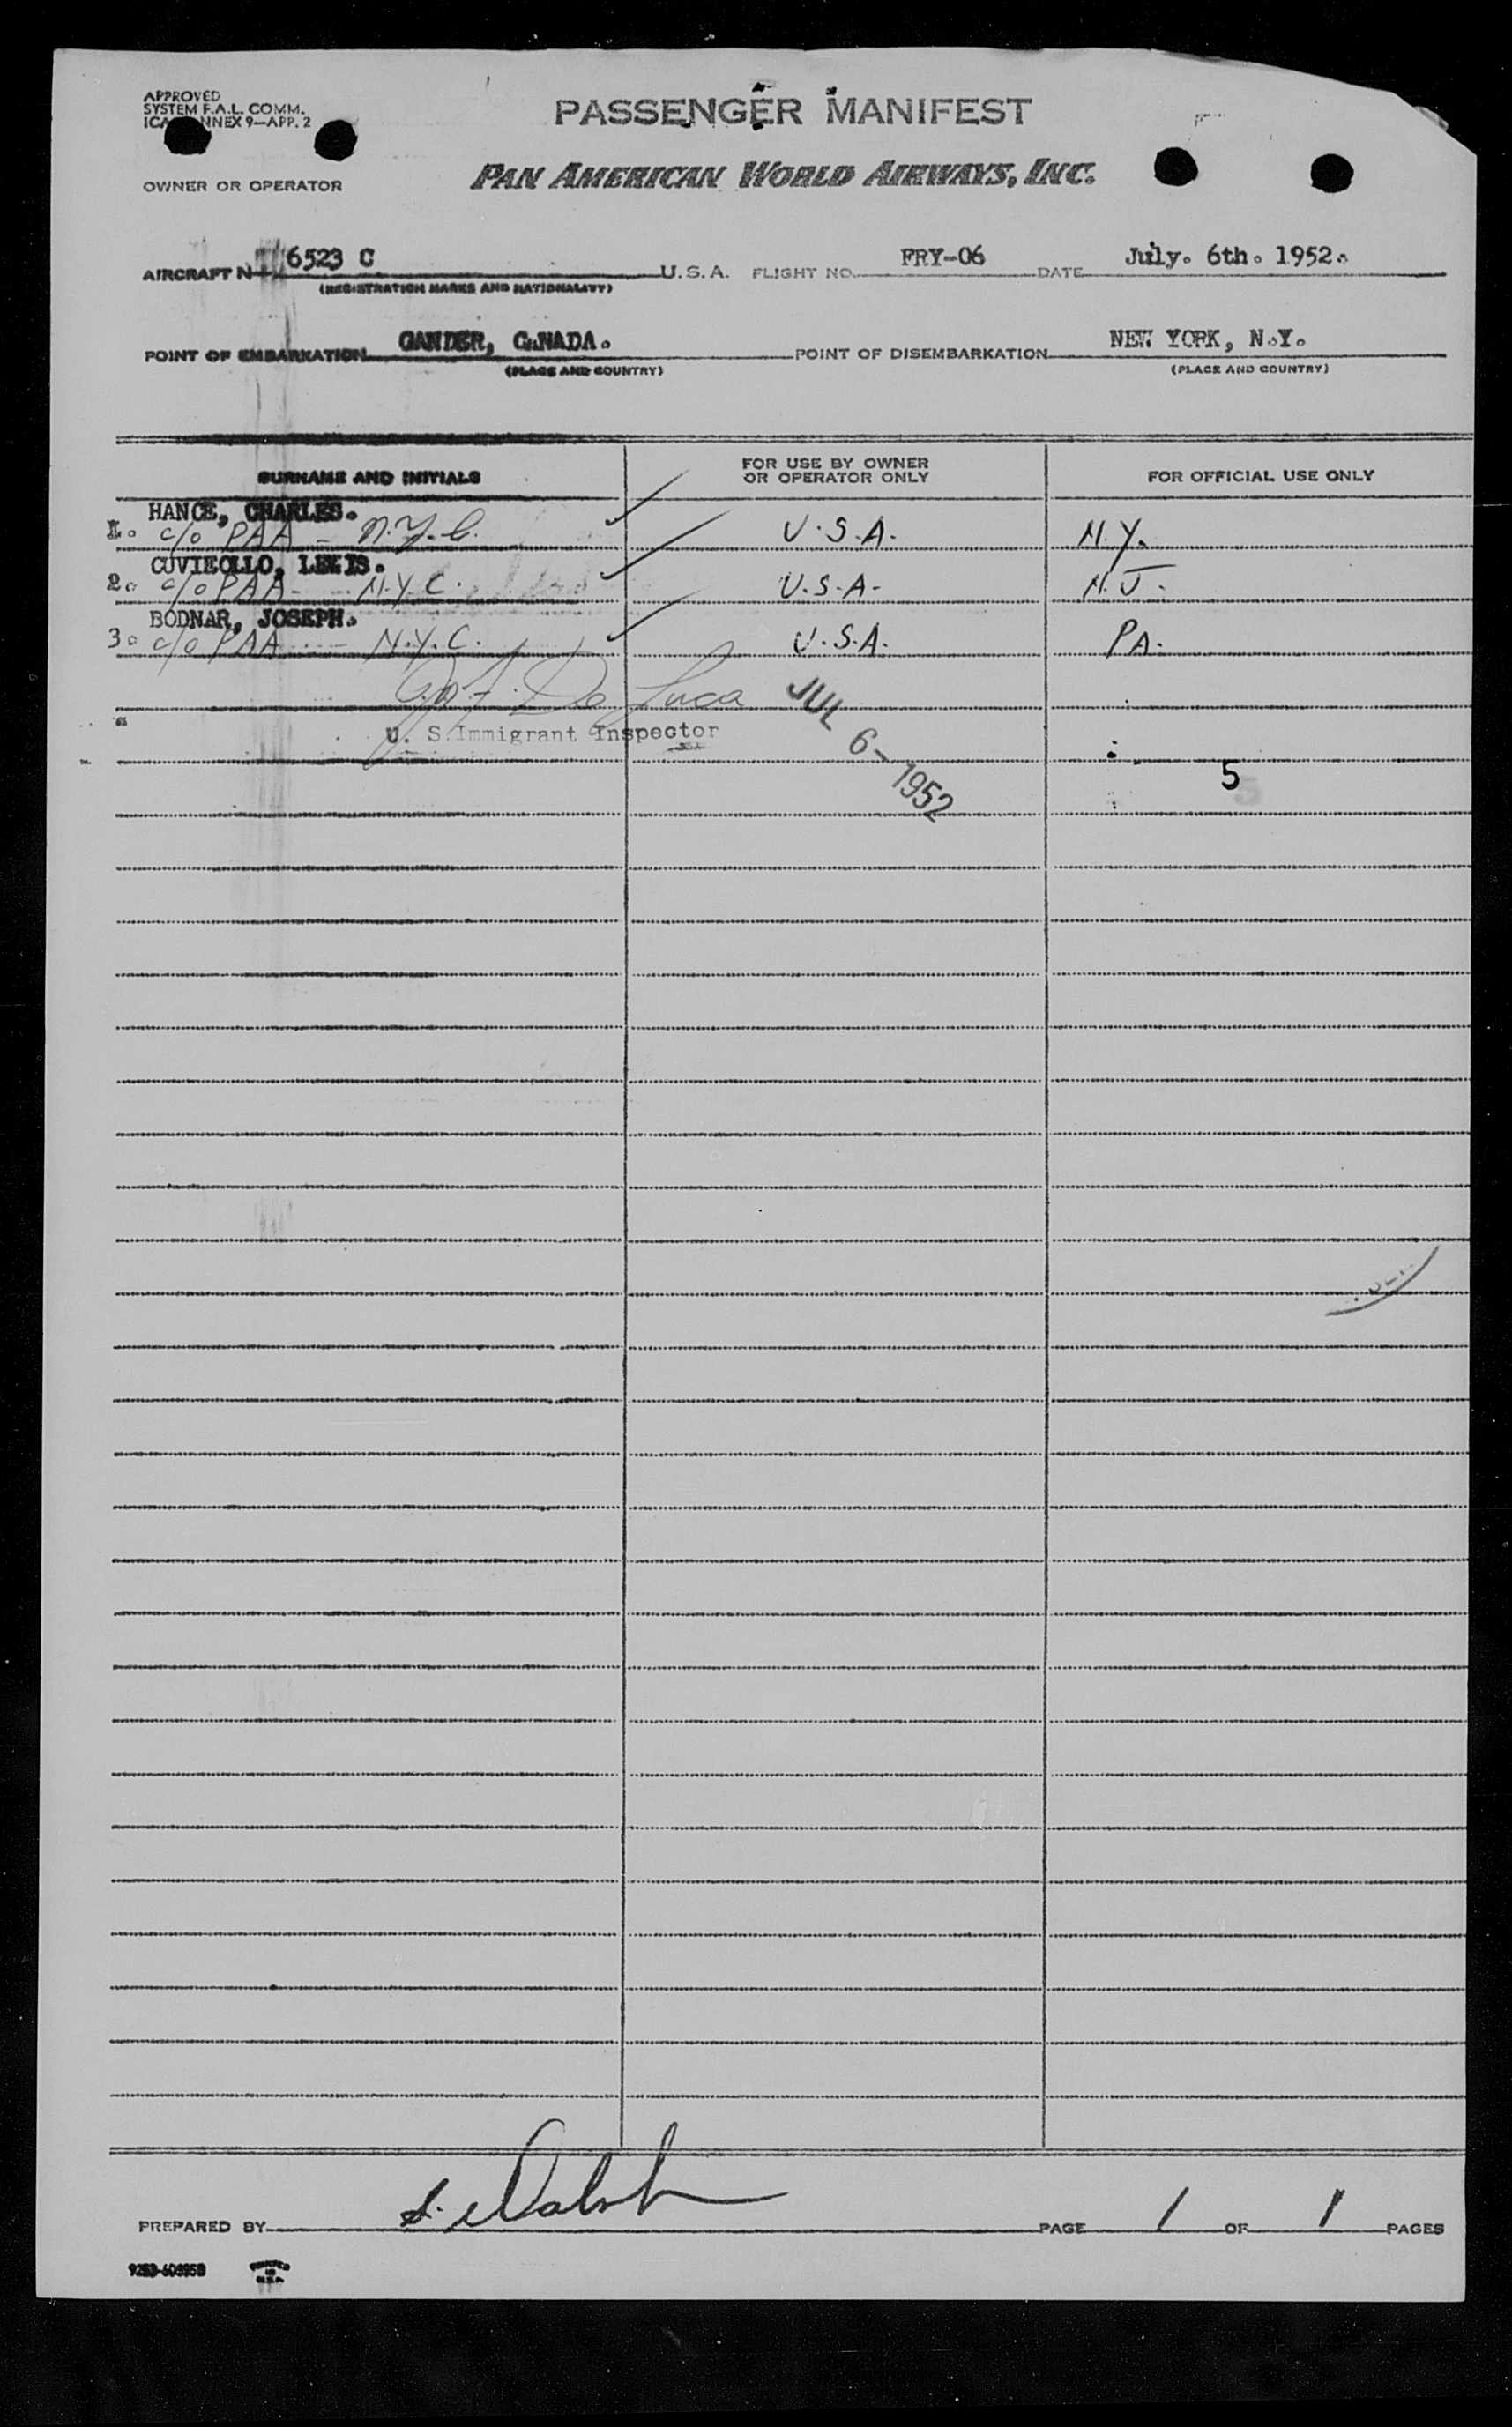 APPROVED
SYSTEM F.A.L. COMM.
ICA ANNEX 9—APP. 2
PASSENGER MANIFEST
OWNER OR OPERATOR
PAN AMERICAN WORLD AIRWAYS, INC.
AIRCRAFT N 6523 C U.S.A. FLIGHT NO. FRY-06 DATE July. 6th. 1952.
(REGISTRATION MARKS AND NATIONALITY)
POINT OF EMBARKATION GANDER, CANADA. POINT OF DISEMBARKATION NEW YORK, N.Y.
(PLACE AND COUNTRY) (PLACE AND COUNTRY)
SURNAME AND INITIALS FOR USE BY OWNER OR OPERATOR ONLY FOR OFFICIAL USE ONLY
HANCE, CHARLES.
1. c/o PAA - N.Y.C. U.S.A. N.Y.
CUVIEOLLO, LEWIS.
2. c/o PAA - N.Y.C. U.S.A. N.J.
BODNAR, JOSEPH.
3. c/o PAA - N.Y.C. U.S.A. PA.
De Luca
U. S. Immigrant Inspector
JUL 6 - 1952
5
PREPARED BY S. Walsh PAGE 1 OF 1 PAGES
PRINTED IN U.S.A.